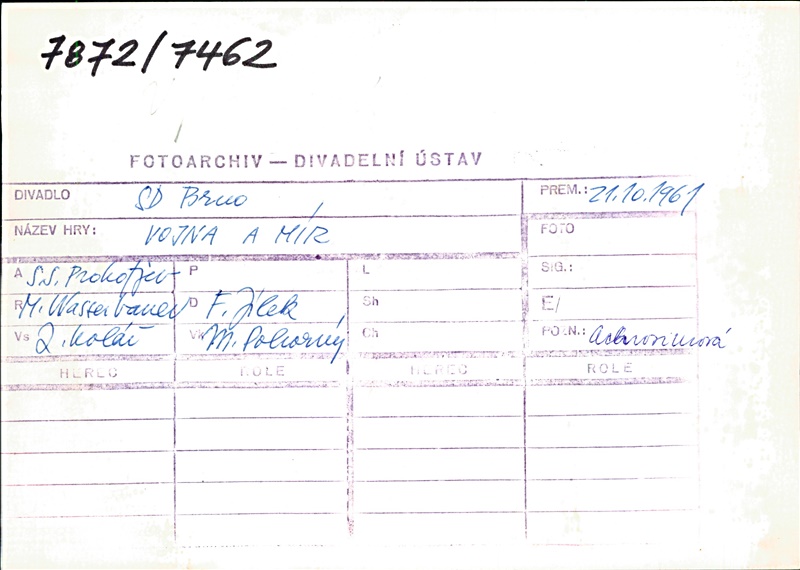 7872/7462
FOTOARCHIV — DIVADELNÍ ÚSTAV
DIVADLO SD Brno PREM.: 21.10.1961
NÁZEV HRY: VOJNA A MÍR FOTO
A S.S. Prokofjev P L SIG.:
R M. Wasserbauer D F. Jílek Sh E/
Vs Z. Kolář M. Pokorný Ch POZN.:
HEREC ROLE HEREC ROLE